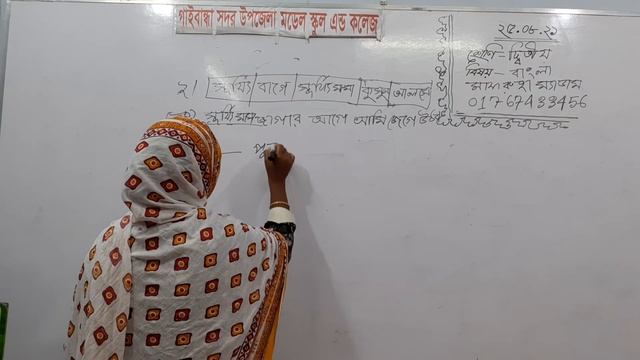 গাইবান্ধা সদর উপজেলা মডেল স্কুল এন্ড কলেজ
২৫.০৮.২১
শ্রেণি - দ্বিতীয়
বিষয় - বাংলা
মাফরুহা ম্যাডাম
01767433456
২। সূর্য্যি বাগে সূর্য্যিমামা কুসুম আলসে
সূর্য্যি মামা জাগার আগে আমি জেগে উঠব
পু